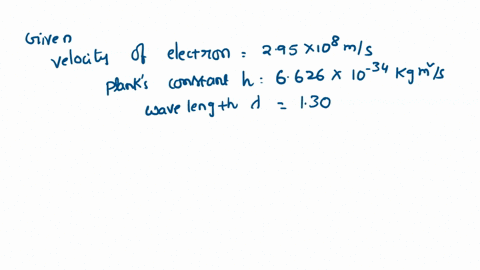 Given
velocity of electron = 2.95 × 10⁸ m/s
plank's constant h : 6.626 × 10⁻³⁴ Kg m²/s
wave length λ = 1.30